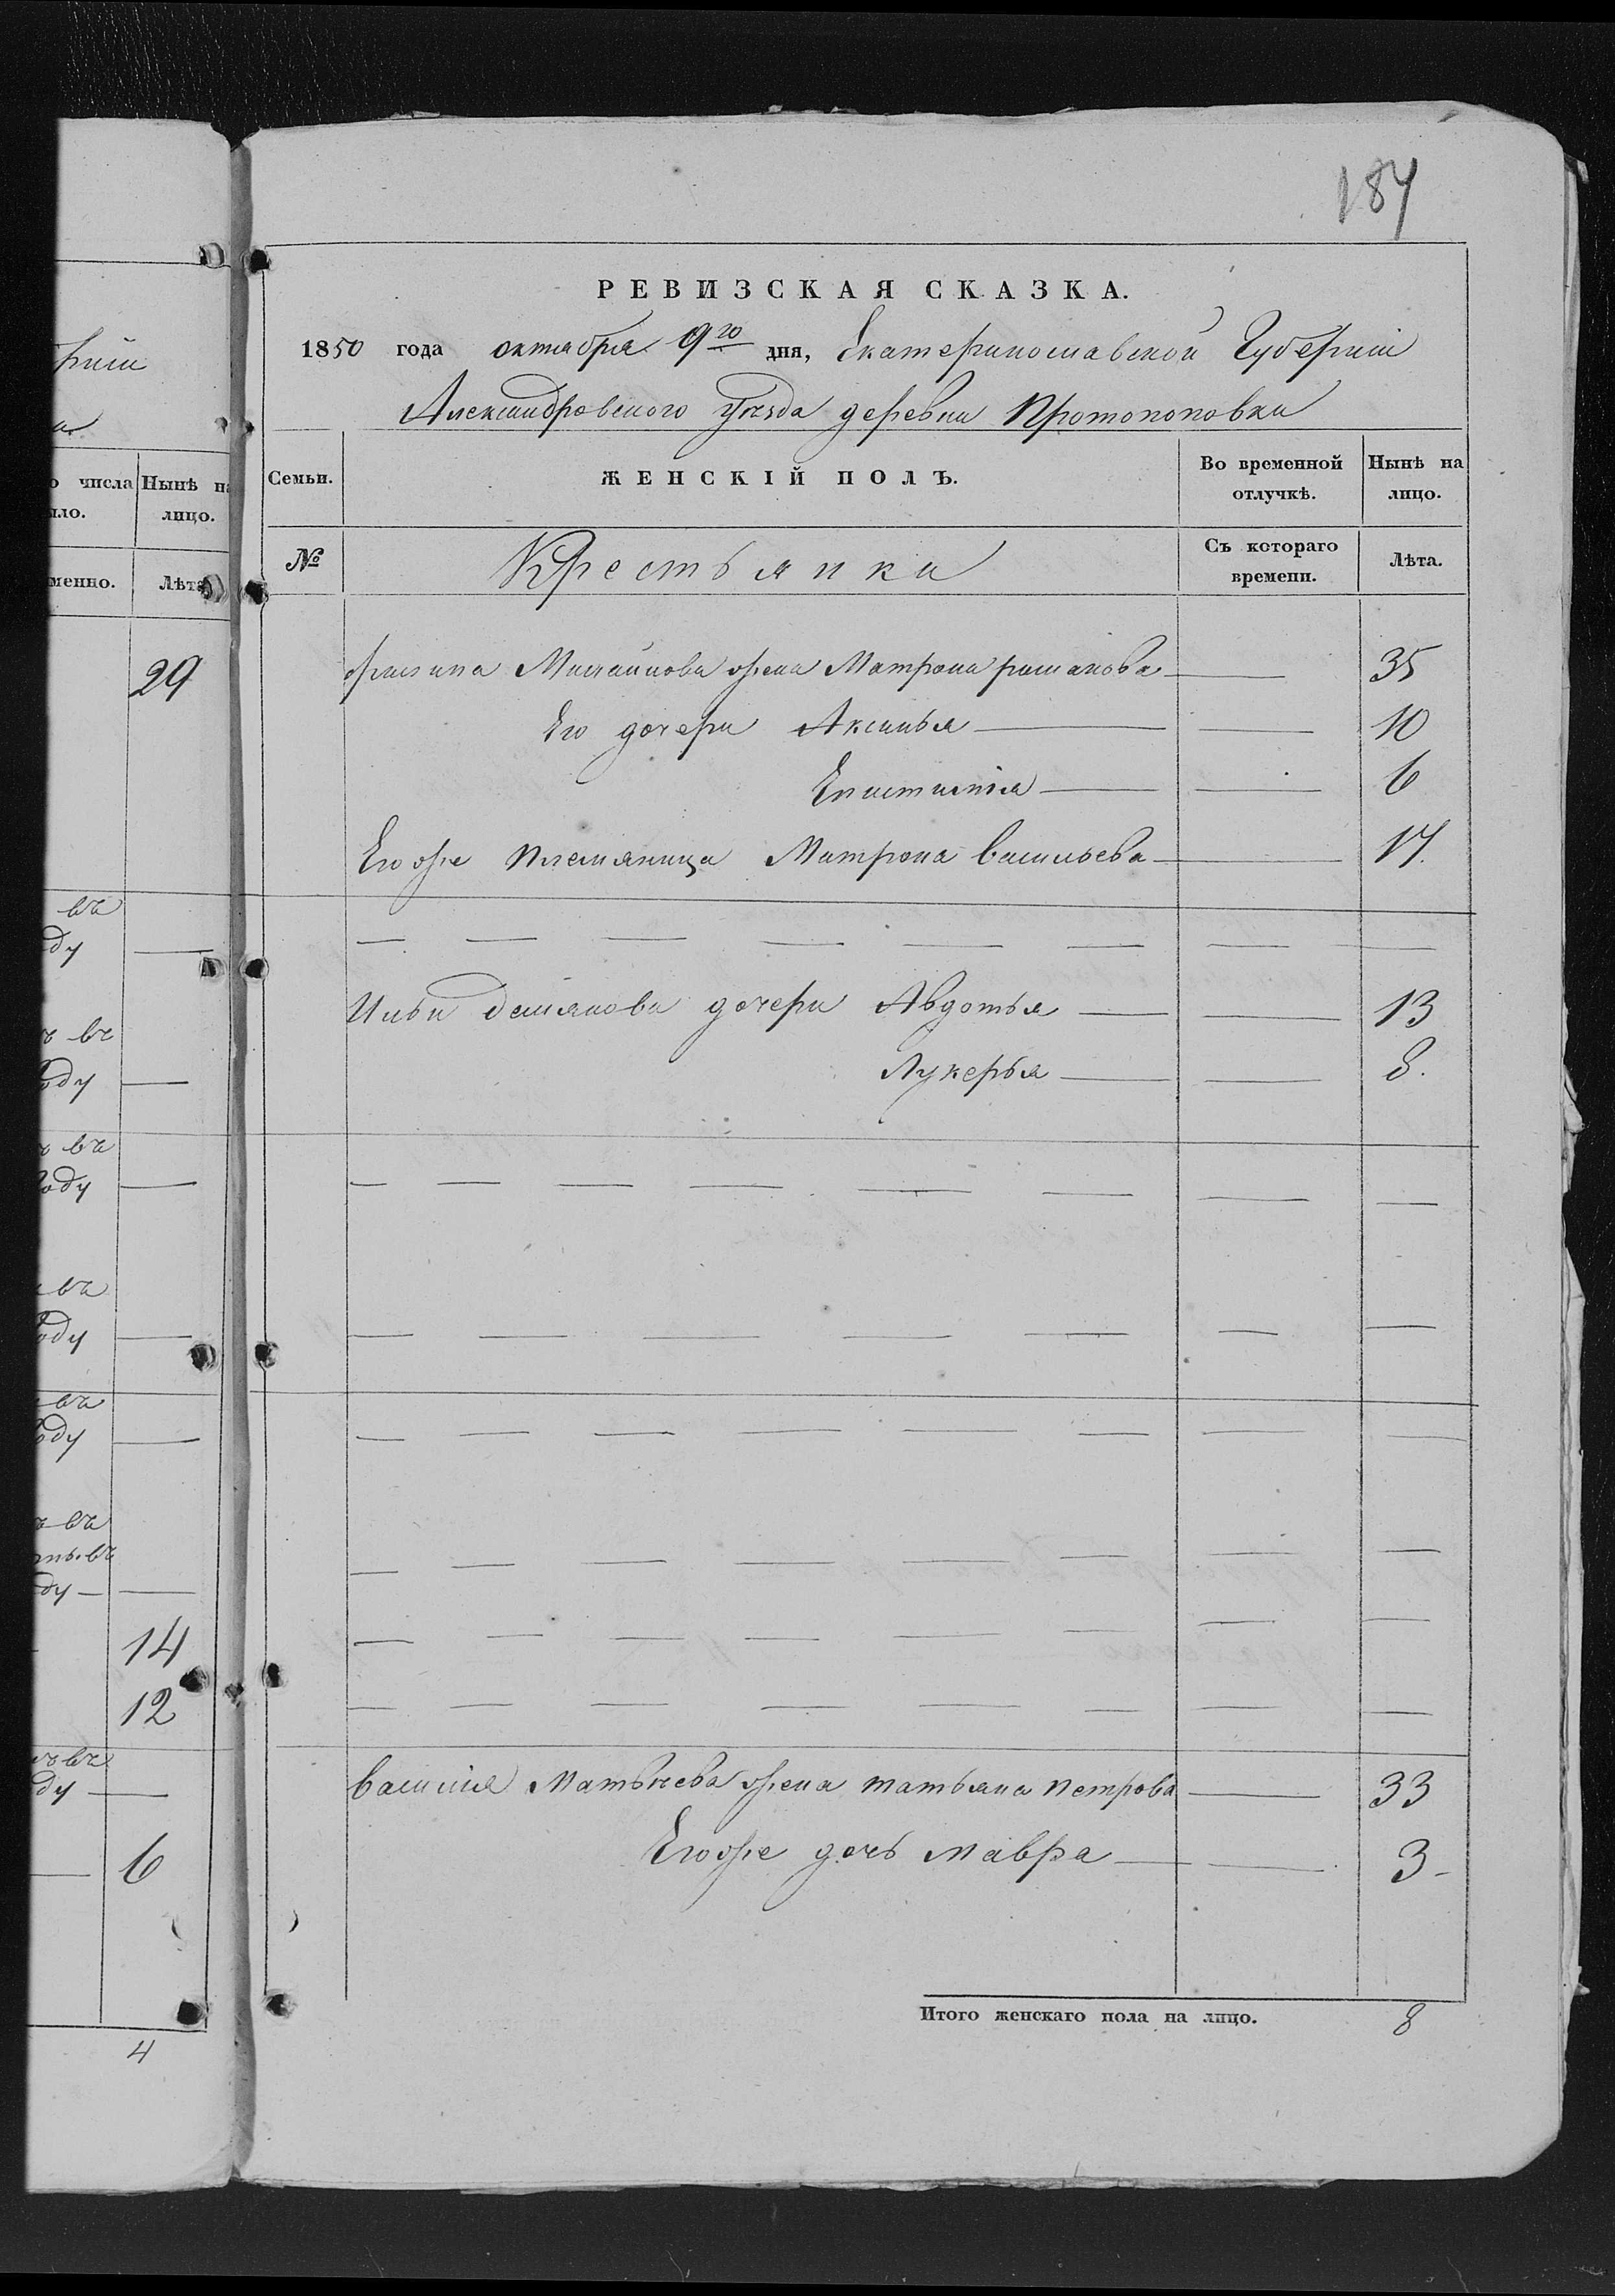 187
РЕВИЗСКАЯ СКАЗКА.
1850 года октября 9го дня, Екатеринославской Губернии
Александровского уезда деревни Протопоповки
Семьи.
ЖЕНСКІЙ ПОЛЪ.
Во временной отлучкѣ.
Нынѣ на лицо.
№
Крестьянки
Съ котораго времени.
Лѣта.
Михайлова жена Матрона романова — — 35
Его дочери Аксинья — — 10
Епистимія — — 6
Его же племяница Матрона васильева — — 17.
Ильи демянова дочери Авдотья — — 13
Лукерья — — 8.
василия Матвѣева жена татьяна петрова — 33
Его же дочь мавра — — 3-
Итого женскаго пола на лицо. 8
числа
Нынѣ на
лицо.
Лѣта
29
въ
ду
въ
оду
въ
оду
въ
оду
въ
оду
въ
ду —
14
12
въ
ду —
6
4